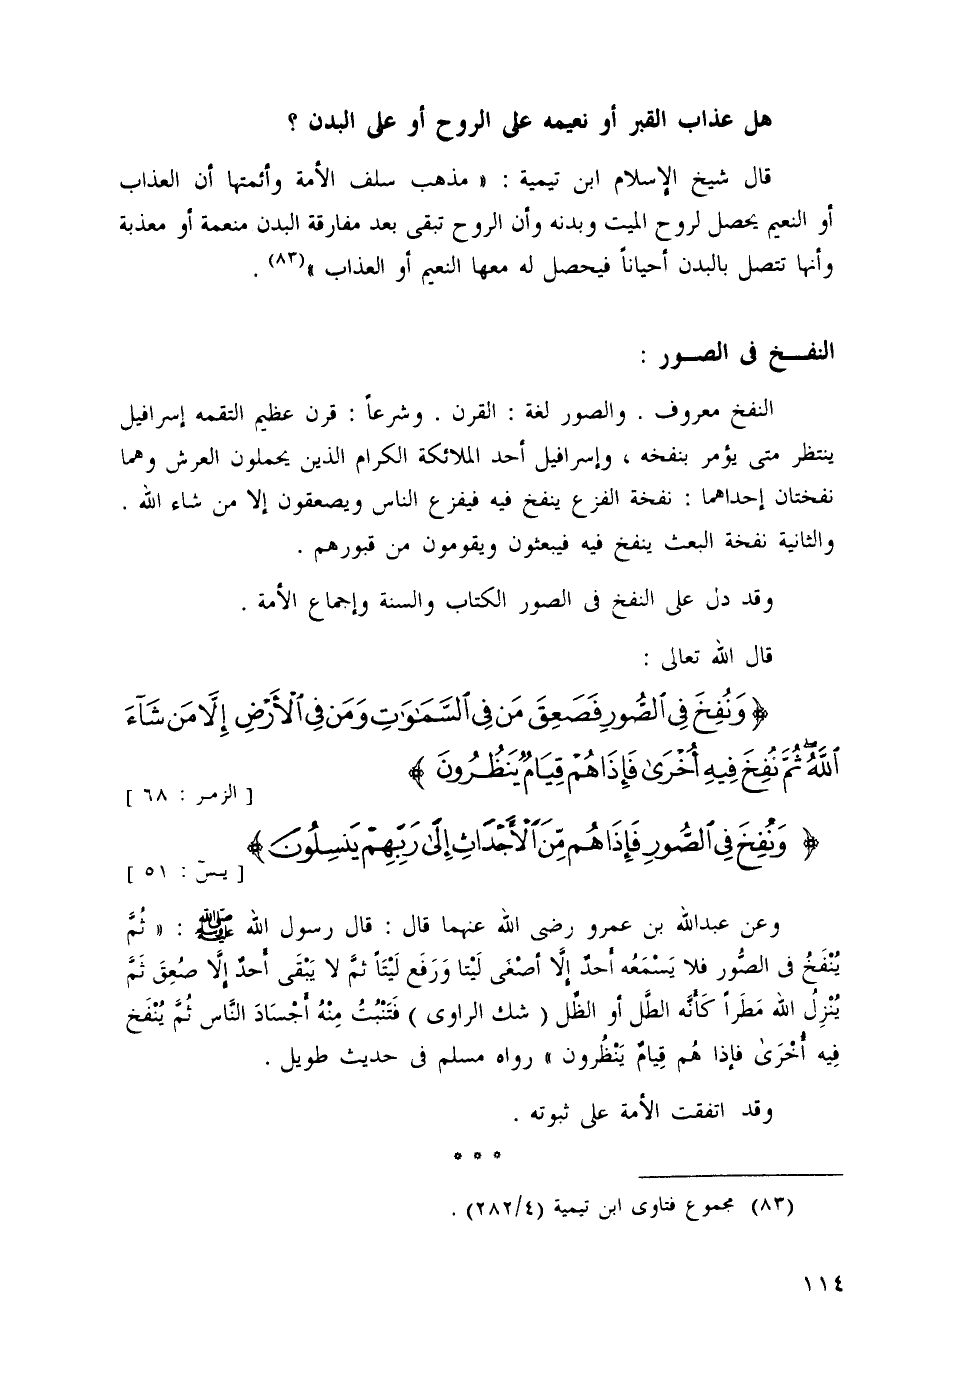 هل عذاب القبر أو نعيمه على الروح أو على البدن ؟
قال شيخ الإسلام ابن تيمية : « مذهب سلف الأمة وأئمتها أن العذاب
أو النعيم يحصل لروح الميت وبدنه وأن الروح تبقى بعد مفارقة البدن منعمة أو معذبة
وأنها تتصل بالبدن أحياناً فيحصل له معها النعيم أو العذاب »(٨٣) .
النفــخ فى الصــور :
النفخ معروف . والصور لغة : القرن . وشرعاً : قرن عظيم التقمه إسرافيل
ينتظر متى يؤمر بنفخه ، وإسرافيل أحد الملائكة الكرام الذين يحملون العرش وهما
نفختان إحداهما : نفخة الفزع ينفخ فيه فيفزع الناس ويصعقون إلا من شاء الله .
والثانية نفخة البعث ينفخ فيه فيبعثون ويقومون من قبورهم .
وقد دل على النفخ فى الصور الكتاب والسنة وإجماع الأمة .
قال الله تعالى :
﴿ وَنُفِخَ فِي ٱلصُّورِ فَصَعِقَ مَن فِي ٱلسَّمَٰوَٰتِ وَمَن فِي ٱلْأَرْضِ إِلَّا مَن شَآءَ
ٱللَّهُ ۖ ثُمَّ نُفِخَ فِيهِ أُخْرَىٰ فَإِذَا هُمْ قِيَامٌ يَنظُرُونَ ﴾
[ الزمر : ٦٨ ]
﴿ وَنُفِخَ فِي ٱلصُّورِ فَإِذَا هُم مِّنَ ٱلْأَجْدَاثِ إِلَىٰ رَبِّهِمْ يَنسِلُونَ ﴾
[ يسٓ : ٥١ ]
وعن عبدالله بن عمرو رضى الله عنهما قال : قال رسول الله ﷺ : « ثُمَّ
يُنْفَخُ فى الصُّور فلا يَسْمَعُه أحدٌ إلَّا أصْغَى لَيْتا وَرَفَع لَيْتَاً ثمَّ لا يَبْقَى أحدٌ إلَّا صُعِقَ ثَمَّ
يُنْزِلُ الله مَطَراً كَأَنَّه الطَّل أو الظِّل ( شك الراوى ) فَتَنْبُتُ مِنْهُ أجْسَادَ النَّاس ثُمَّ يُنْفَخ
فِيه أُخْرَىٰ فإذا هُم قِيامٌ يَنْظُرون » رواه مسلم فى حديث طويل .
وقد اتفقت الأمة على ثبوته .
* * *
(٨٣) مجموع فتاوى ابن تيمية (٢٨٢/٤) .
١١٤